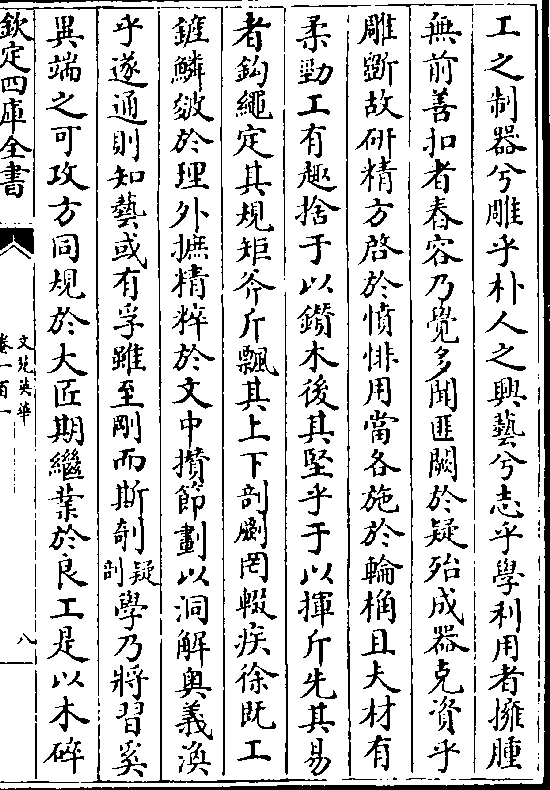 工之制器兮雕乎朴人之興藝兮志乎學利用者擁腫
無前善扣者舂容乃覺多聞匪闕於疑殆成器克資乎
雕斵故研精方啓於憤悱用當各施於輪桷且夫材有
柔勁工有趣捨于以鑚木後其堅乎于以揮斤先其易
者鈎繩定其規矩斧斤飄其上下剖劂罔輟疾徐既工
鎚鱗皴於理外摭精粹於文中攢節劃以洞解奥義渙
乎遂通則知藝或有孚雖至剛而斯剞疑剖學乃將習奚
異端之可攻方同規於大匠期繼業於良工是以木碎
欽定四庫全書
文苑英華
卷一百一
八